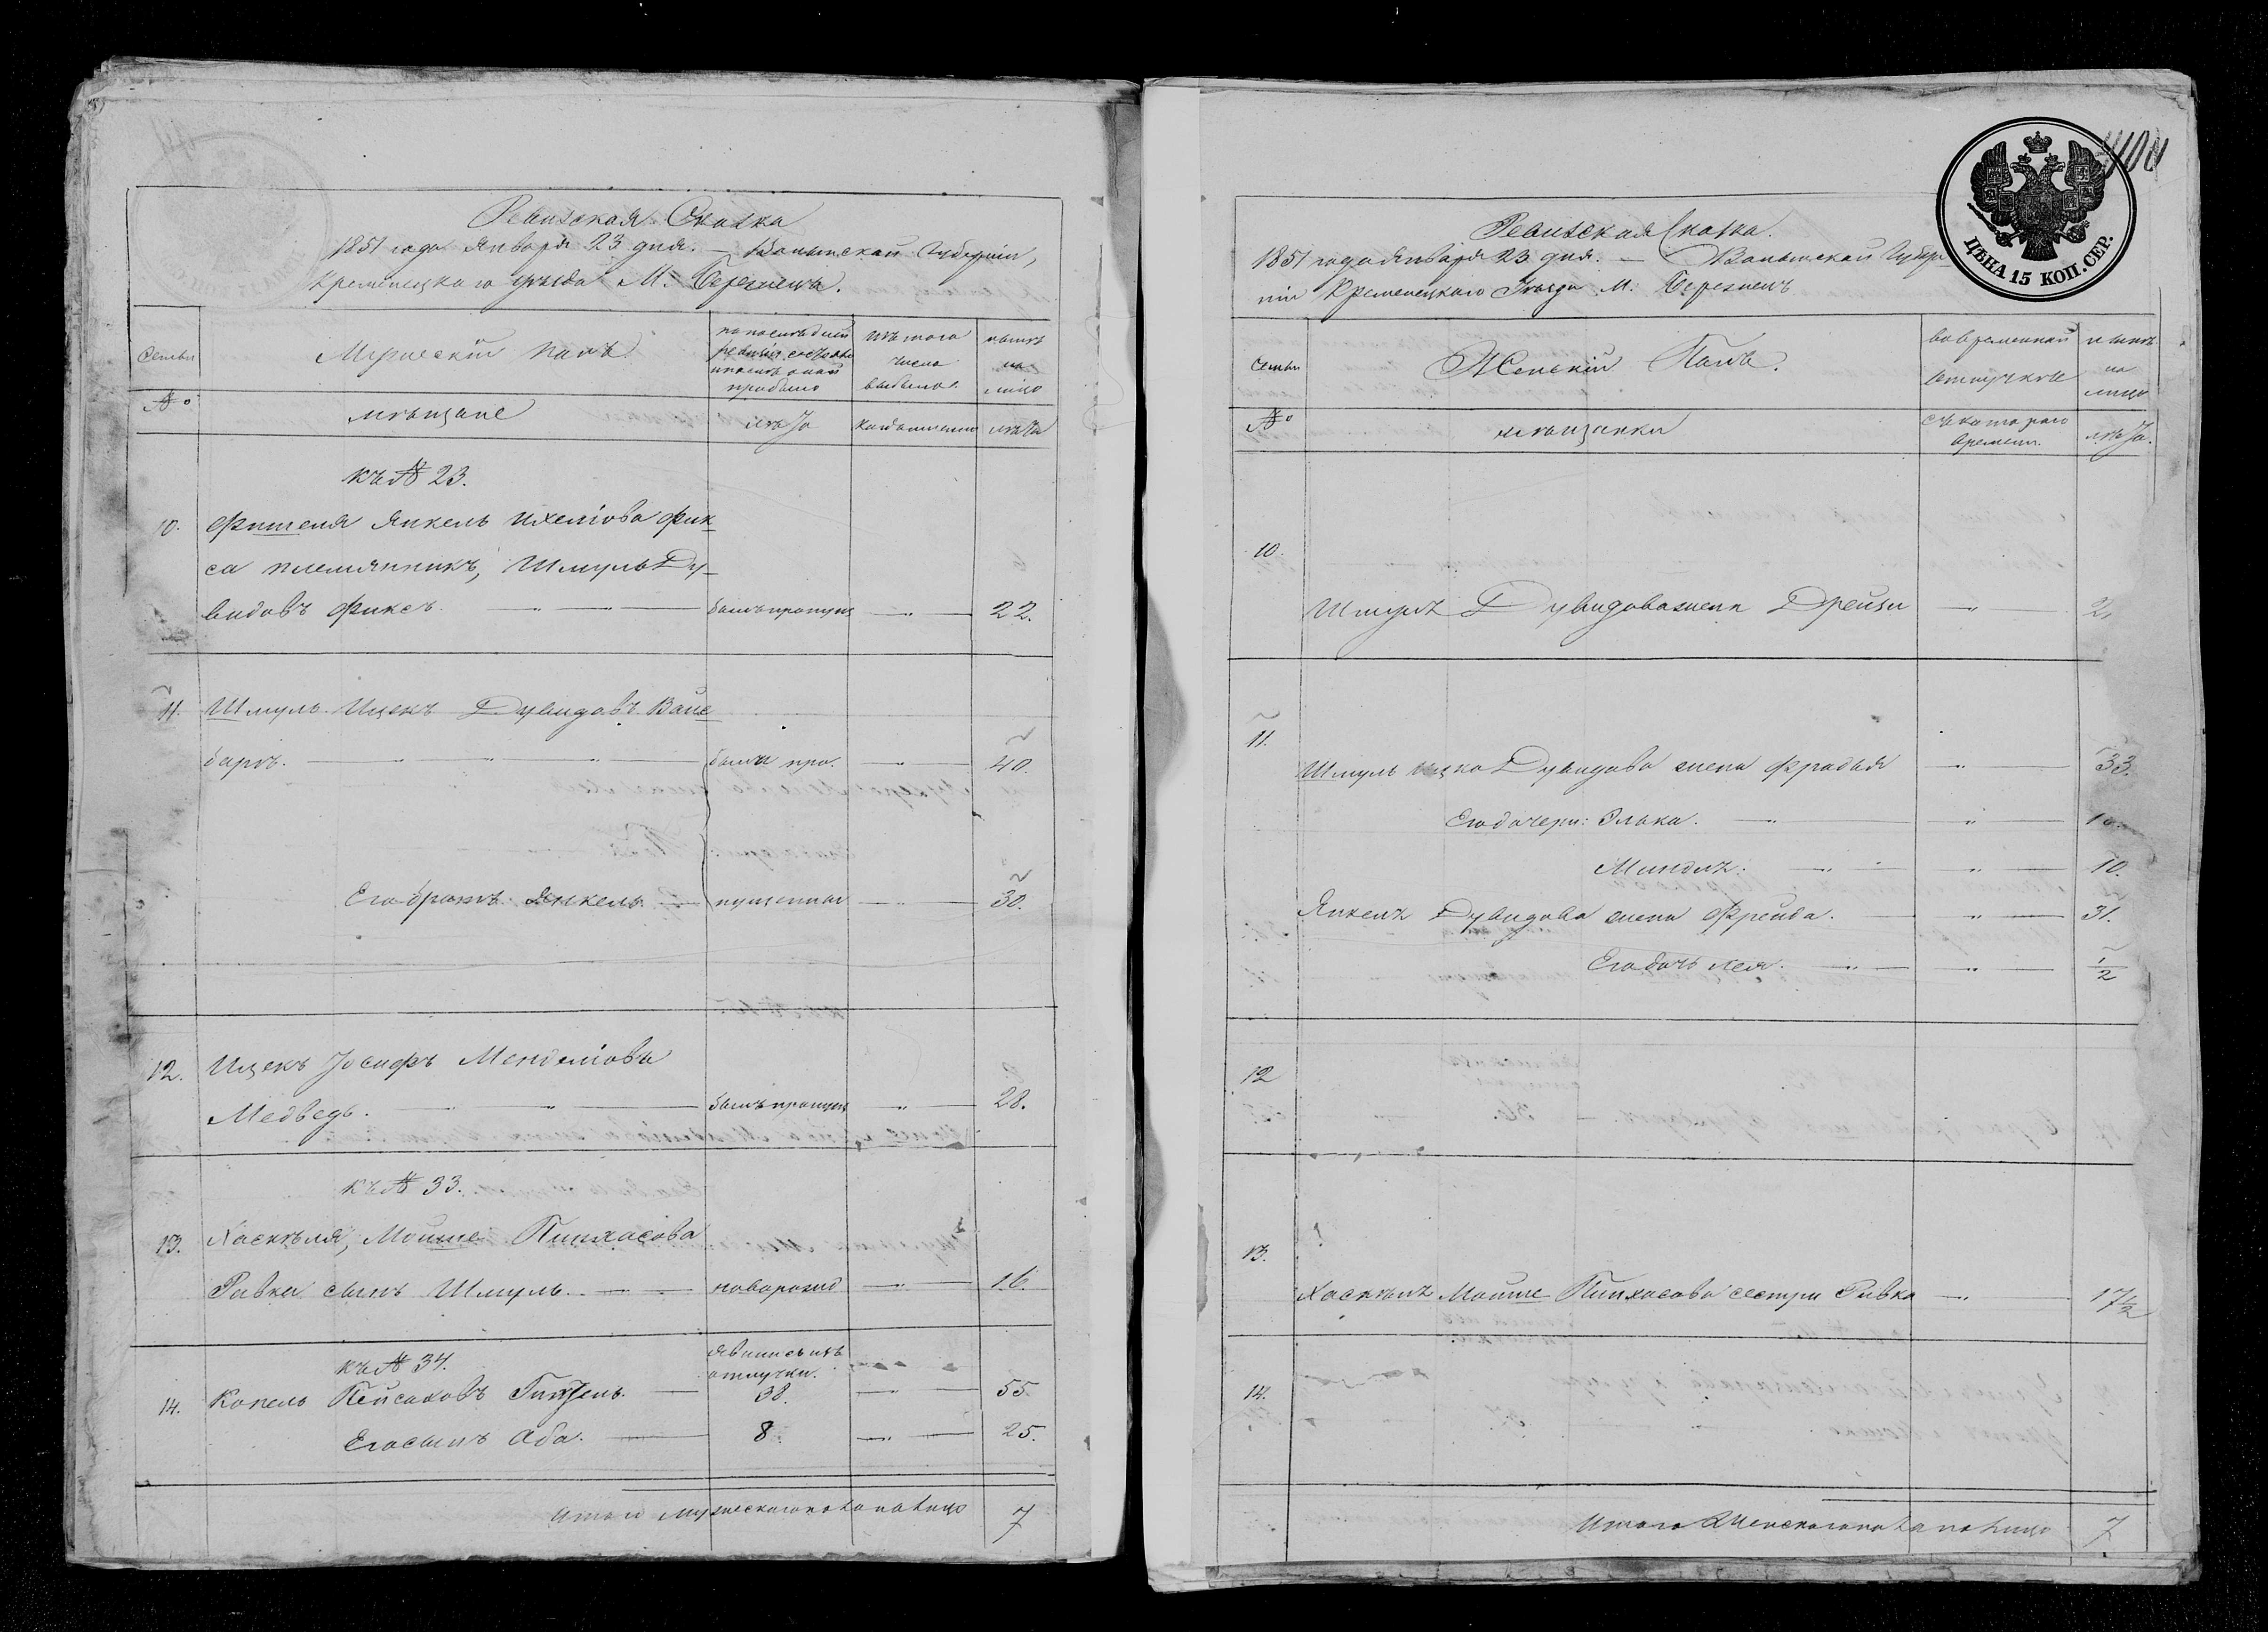 Ревизская Сказка
1851 года Января 23 дня. — Волынской Губерніи,
Кременецкаго уѣзда М. Березцевъ.
Семьи
Мужескій полъ
по послѣдней ревизіи состояло и послѣ оной прибыло
изъ того числа выбыло.
нынѣ на лицо
№
мѣщане
лѣта
когда именно
лѣта
къ № 23.
10. Фишеля Янкель Ихелiова Фик-
са племянникъ, Шмуль Ду-
видовъ Фиксъ. — былъ пропущ — 22.
11. Шмуль Ицекъ Дувидовъ Вайс
баръ. — были про. — 40.
Его братъ Янкель — пущенны — 30.
12. Ицекъ Іосифъ Менделiовъ
Медведь. — былъ пропущ — 28.
къ № 33.
13. Хаскеля, Мошие Пинхасова
Равка сынъ Шмуль. — новорожд — 16.
къ № 34. явились изъ отлучки.
14. Копель Пейсаховъ — 38. — 55
Его сынъ Аба. — 8. — 25.
Итого мужескаго пола на лицо 7
Ревизская Сказка.
1851 года Января 23 дня. — Волынской Губер-
ніи Кременецкаго Уѣзда М. Березцевъ
ЦѢНА 15 КОП. СЕР.
Семьи
Женскій Полъ.
во временной отлучкѣ
нынѣ на лицо
№
мѣщанки
съ котораго времени.
лѣта.
10.
Шмуля Дувидова жена Дрейзи — 2
11.
Шмуль Ицка Дувидова жена Фрадья — 33.
Его дочери: Элька. — 1
Миндля. — 10.
Янкеля Дувидова жена Фрейда. — 31.
Его дочь Лея. — 1/2
12
13.
Хаскеля Мошие Пинхасова сестра Ривка — 17 1/2
14.
Итого Женскаго пола на лицо 7